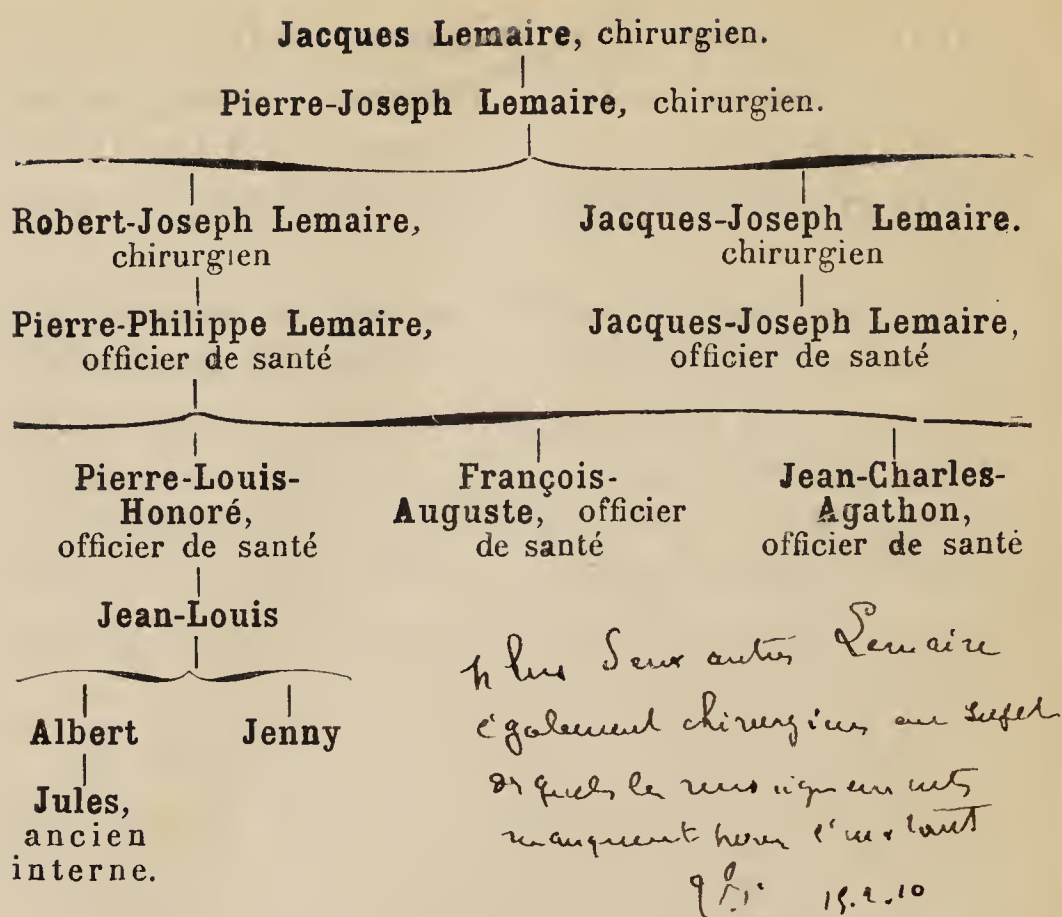 Jacques Lemaire, chirurgien.
Pierre-Joseph Lemaire, chirurgien.
Robert-Joseph Lemaire,
chirurgien
Jacques-Joseph Lemaire.
chirurgien
Pierre-Philippe Lemaire,
officier de santé
Jacques-Joseph Lemaire,
officier de santé
Pierre-Louis-
Honoré,
officier de santé
François-
Auguste, officier
de santé
Jean-Charles-
Agathon,
officier de santé
Jean-Louis
Albert
Jenny
Jules,
ancien
interne.
plus deux autres Lemaire
également chirurgiens au sujet
desquels les renseignements
manquent pour l'instant